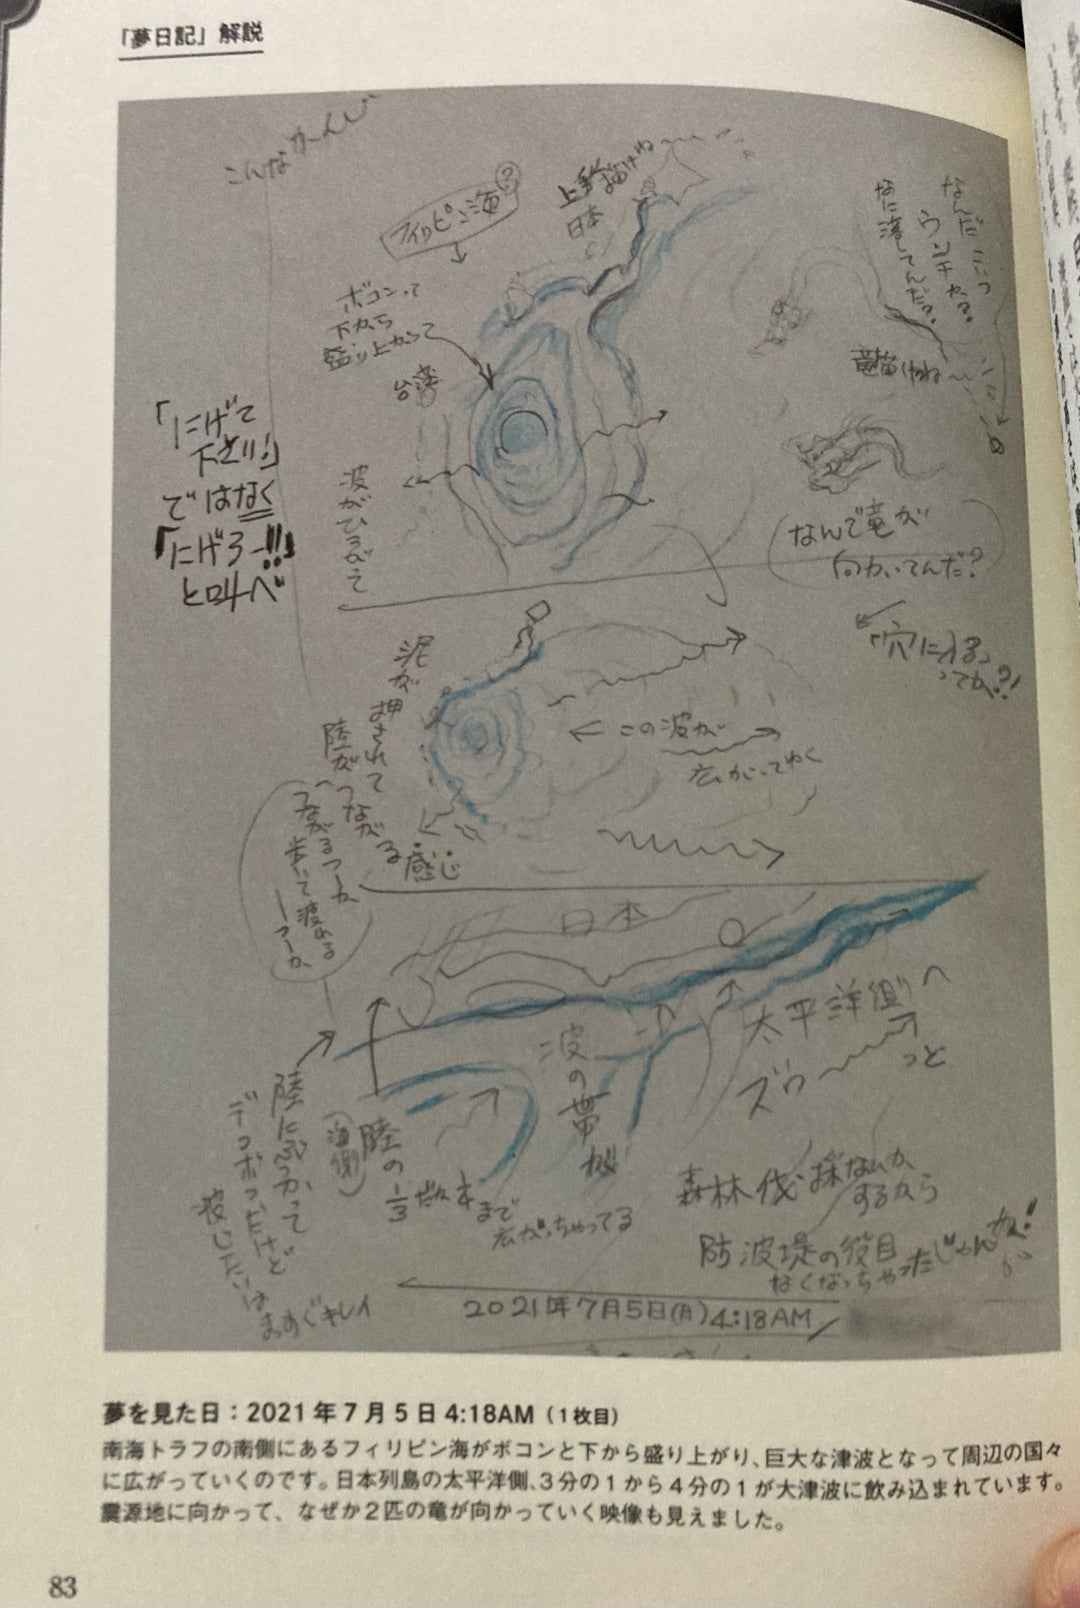 「夢日記」解説
こんなかーんじ
フィリピン海?
上手く描けね
日本
ボコンって
下から
盛り上がって
台湾
なんだこいつ
なに落してんだろ。
竜描けねぇ
なんで竜が
向かいてんだ?
「穴に入る」
ってか?!
「にげて
下さい!」
ではなく
「にげろー!!」
と叫べ
波がひろがって
泥が押されて
陸がつながる
感じ
つながるつーか
歩いて渡れる
つーか
この波が
広がってゆく
日本
太平洋側へ
ズゥ〜っと
波の帯が
陸にぶつかって
デコボコだけど
波じたいは
まっすぐキレイ
(海側)
陸の1/3
数本まで
広がっちゃってる
森林伐採なんか
するから
防波堤の役目
なくなっちゃったじゃんか!
2021年7月5日(月)4:18AM/
夢を見た日:2021年7月5日 4:18AM(1枚目)
南海トラフの南側にあるフィリピン海がボコンと下から盛り上がり、巨大な津波となって周辺の国々
に広がっていくのです。日本列島の太平洋側、3分の1から4分の1が大津波に飲み込まれています。
震源地に向かって、なぜか2匹の竜が向かっていく映像も見えました。
83